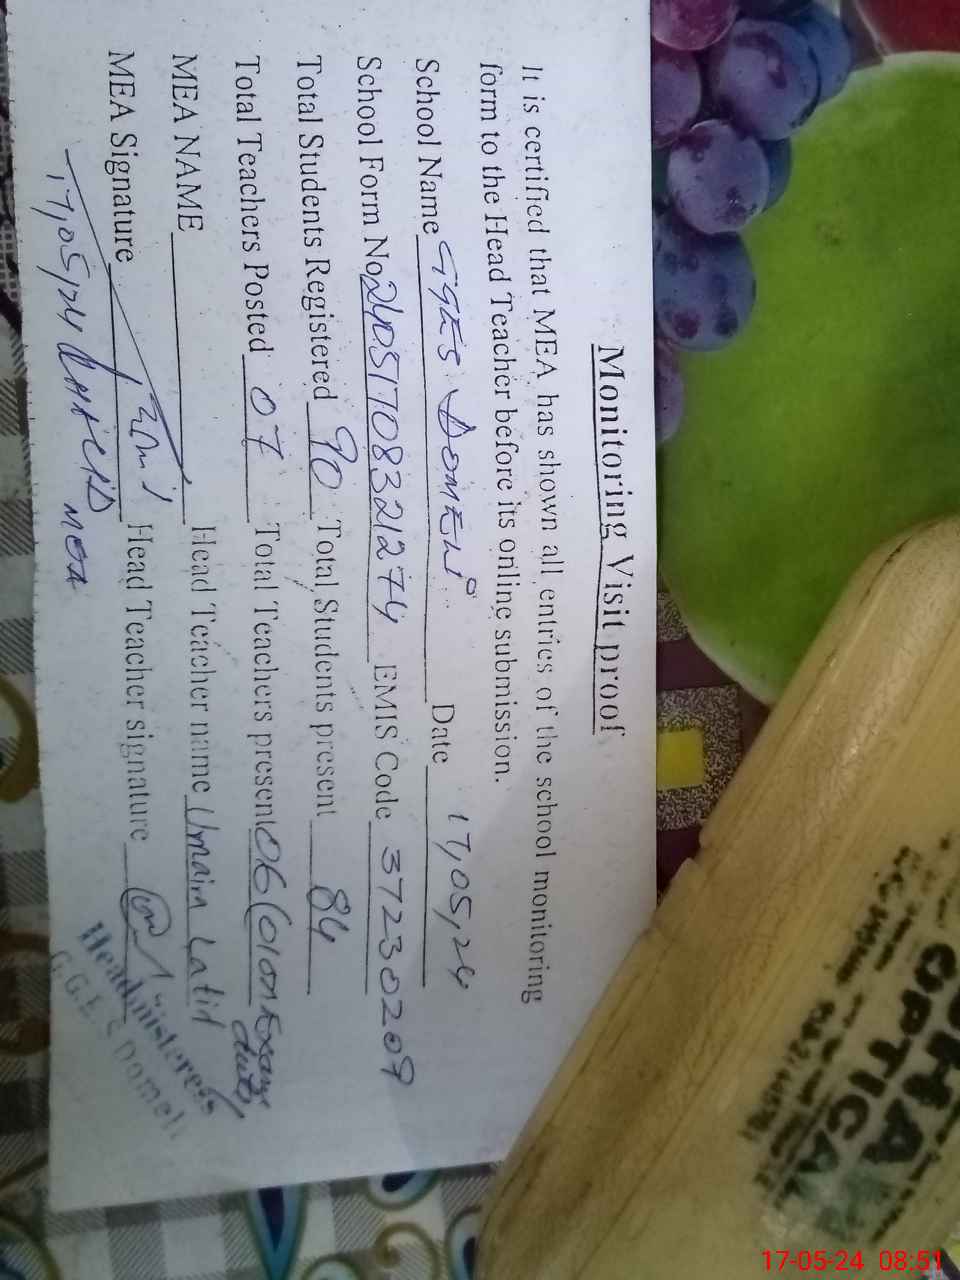 Monitoring Visit proof
It is certified that MEA has shown all entries of the school monitoring
form to the Head Teacher before its online submission.
School Name GGES DOMELI Date 17,05,24
School Form No 240517083221274 EMIS Code 37230209
Total Students Registered 90 Total Students present 84
Total Teachers Posted 07 Total Teachers present 06 (01 on Exam
duty)
MEA NAME Head Teacher name Umaira Latif
MEA Signature Head Teacher signature
17,05,24 MEA
Headmisteress
G.G.E.S Domeli
OPTICAL
17-05-24 08:51